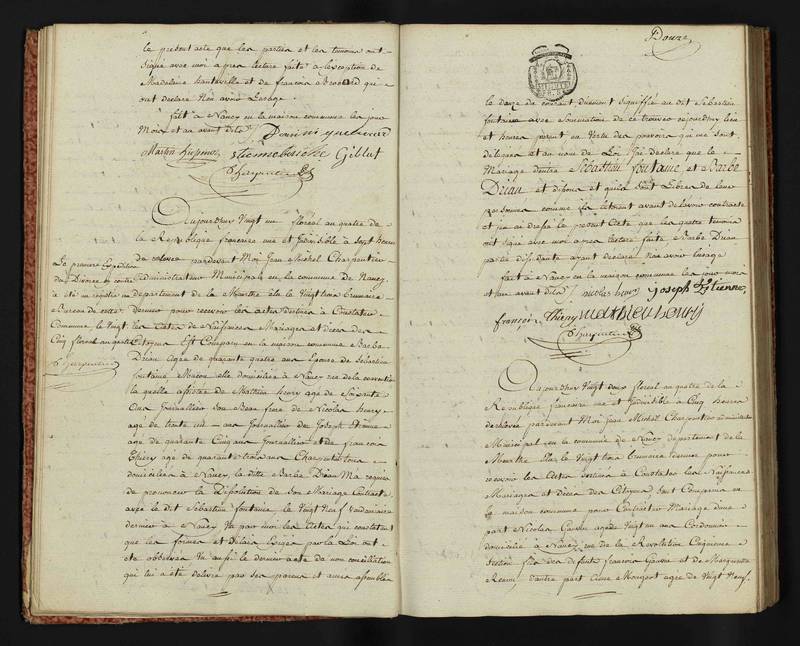 le présent acte que les parties et les temoins ont
signé avec moi après lecture faite à l'exception de
Madelaine hauteville et de francois Brossard qui
ont déclaré Non avoir L'usage
fait à Nancy en la maison commune les jour
Mois et an avant dits
Martin Etienne Giblut
Charpentier
Aujourdhuy Vingt un floréal an quatre de
la Republique francaise une et Indivisible à sept heures
de relevée pardevant Moi Jean Michel Charpentier
administrateur Municipal en la commune de Nancy
departement de la Meurthe élu le Vingt trois brumaire
dernier pour recevoir les actes destinés à Constater
les Naissances Mariages et décès des
Citoyens Est Comparu en la maison commune Barbe
Drian agée de quarante quatre ans Epouse de Sebastien
fontaine Macon elle domiciliée à Nancy rue de la
la quelle assistée de Mathieu henry agé de soixante
ans Journallier son Beau frere de Nicolas henry
agé de trente un ans Journallier de Joseph Etienne
agé de quarante Cinq ans Journallier et de francois
Thiery agé de quarante trois ans Charpentier tous
domiciliés à Nancy, la ditte Barbe Drian M'a requis
de prononcer la Dissolution de son Mariage Contracté
avec le dit Sebastien fontaine le Vingt Neuf Vendemiaire
dernier à Nancy Vu par moi les Actes qui constatent
que les formes et Délais Exigés par la Loi ont
été observés Vu aussi le dernier acte de non conciliation
qui lui a été délivré par ses parens et amis assemblés
La premiere Expedition
du Divorce cy contre
a été enregistrée au
Bureau de cette
Commune le Vingt
Cinq floreal an quatre
Charpentier
Douze
le douze de ce mois duement signiffié au dit Sebastien
fontaine avec Sommation de se trouver aujourdhuy lieu
et heures présent en Vertu des pouvoirs qui me sont
delegués et au nom de la Loi J'ai déclaré que le
Mariage d'entre Sebastien fontaine et Barbe
Drian est dissous et qu'ils sont Libres de leurs
personnes comme ils l'etoient avant de l'avoir contracté
et j'en ai dressé le present Acte que les quatre temoins
ont signé avec moi après lecture faite Barbe Drian
partie deffendante ayant déclaré Non avoir l'usage
fait à Nancy en la maison commune les jour mois
et an avant dits nicolas henry joseph Etienne
françois Thiery mathieu henry
Charpentier
Aujourdhuy Vingt deux floreal an quatre de la
Republique francaise une et Indivisible à Cinq heures
de relevée pardevant Moi Jean Michel Charpentier administrateur
Municipal en la commune de Nancy departement de la
Meurthe élu le Vingt trois brumaire dernier pour
recevoir les Actes destinés à Constater les Naissances
Mariages et décès des Citoyens Sont Comparus en
la maison commune pour Contracter Mariage d'une
part Nicolas agé de Vingt un ans Cordonnier
domicilié à Nancy rue de la Révolution Cinquieme
Section fils des defunts francois et de Marguerite
Remi, d'autre part Anne agée de Vingt Neuf